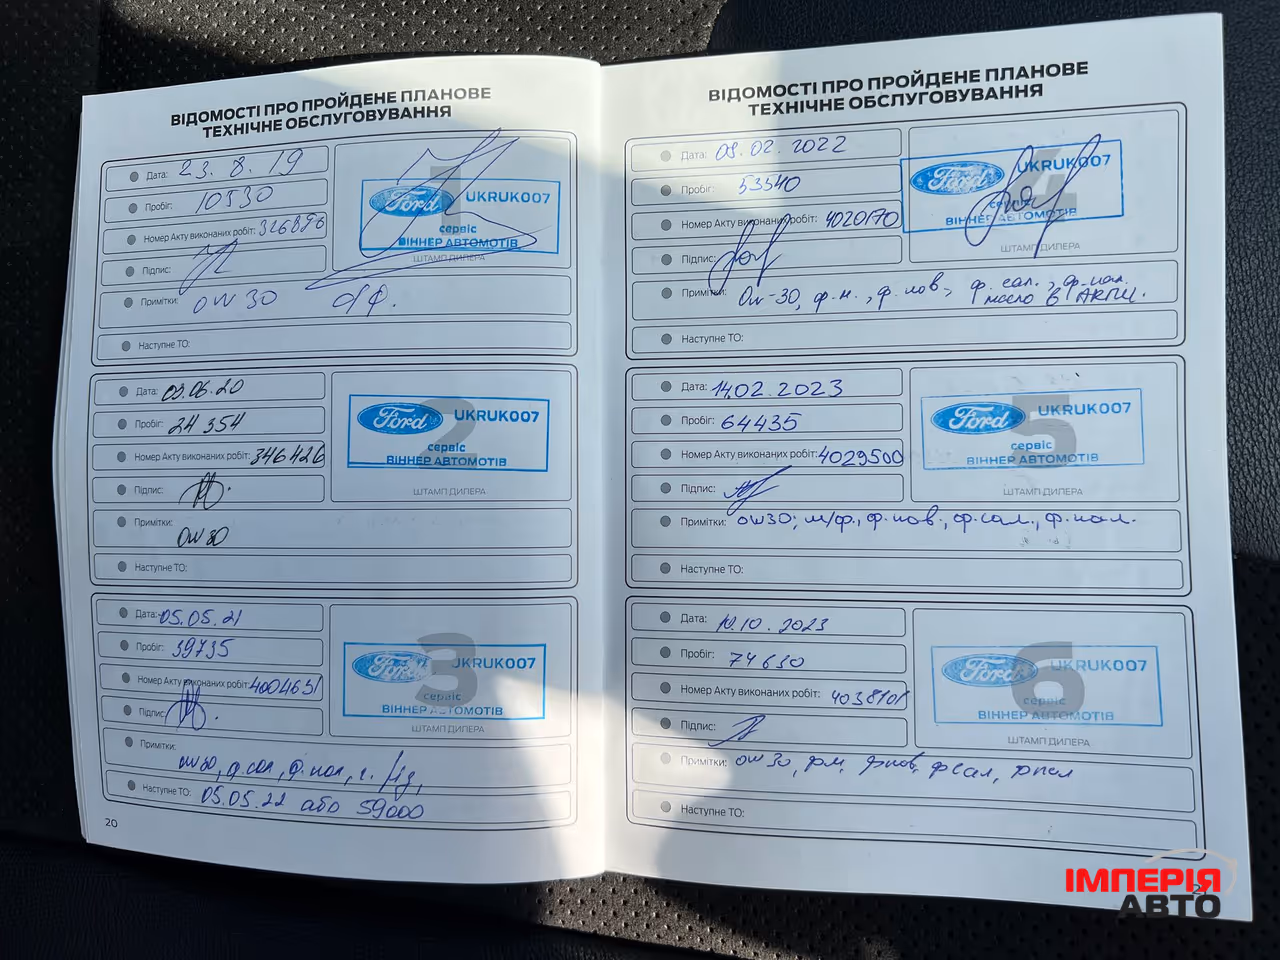 ВІДОМОСТІ ПРО ПРОЙДЕНЕ ПЛАНОВЕ
ТЕХНІЧНЕ ОБСЛУГОВУВАННЯ
Дата: 23.8.19
Пробіг: 10530
Номер Акту виконаних робіт: 326896
Підпис:
Примітки: 0W30
Наступне ТО:
1
Ford UKRUK007
сервіс
ВІННЕР АВТОМОТІВ
ШТАМП ДИЛЕРА
Дата: 03.06.20
Пробіг: 24354
Номер Акту виконаних робіт: 346426
Підпис:
Примітки:
0W30
Наступне ТО:
2
Ford UKRUK007
сервіс
ВІННЕР АВТОМОТІВ
ШТАМП ДИЛЕРА
Дата: 05.05.21
Пробіг: 39735
Номер Акту виконаних робіт: 4004631
Підпис:
Примітки:
0W30, ф.сал, ф.пал,
Наступне ТО: 05.05.22 або 59000
3
Ford UKRUK007
сервіс
ВІННЕР АВТОМОТІВ
ШТАМП ДИЛЕРА
20
ВІДОМОСТІ ПРО ПРОЙДЕНЕ ПЛАНОВЕ
ТЕХНІЧНЕ ОБСЛУГОВУВАННЯ
Дата: 09.02.2022
Пробіг: 53540
Номер Акту виконаних робіт: 4020170
Підпис:
Примітки: 0W-30, ф.м., ф.пов, ф.сал., ф.пал.
масло в АКПП.
Наступне ТО:
4
Ford UKRUK007
сервіс
ВІННЕР АВТОМОТІВ
ШТАМП ДИЛЕРА
Дата: 14.02.2023
Пробіг: 64435
Номер Акту виконаних робіт: 4029500
Підпис:
Примітки: 0W30; м/ф., ф.пов., ф.сал., ф.пал.
Наступне ТО:
5
Ford UKRUK007
сервіс
ВІННЕР АВТОМОТІВ
ШТАМП ДИЛЕРА
Дата: 10.10.2023
Пробіг: 74630
Номер Акту виконаних робіт: 4038101
Підпис:
Примітки: 0W30, фм, фпов, фсал, фпал
Наступне ТО:
6
Ford UKRUK007
сервіс
ВІННЕР АВТОМОТІВ
ШТАМП ДИЛЕРА
21
ІМПЕРІЯ
АВТО